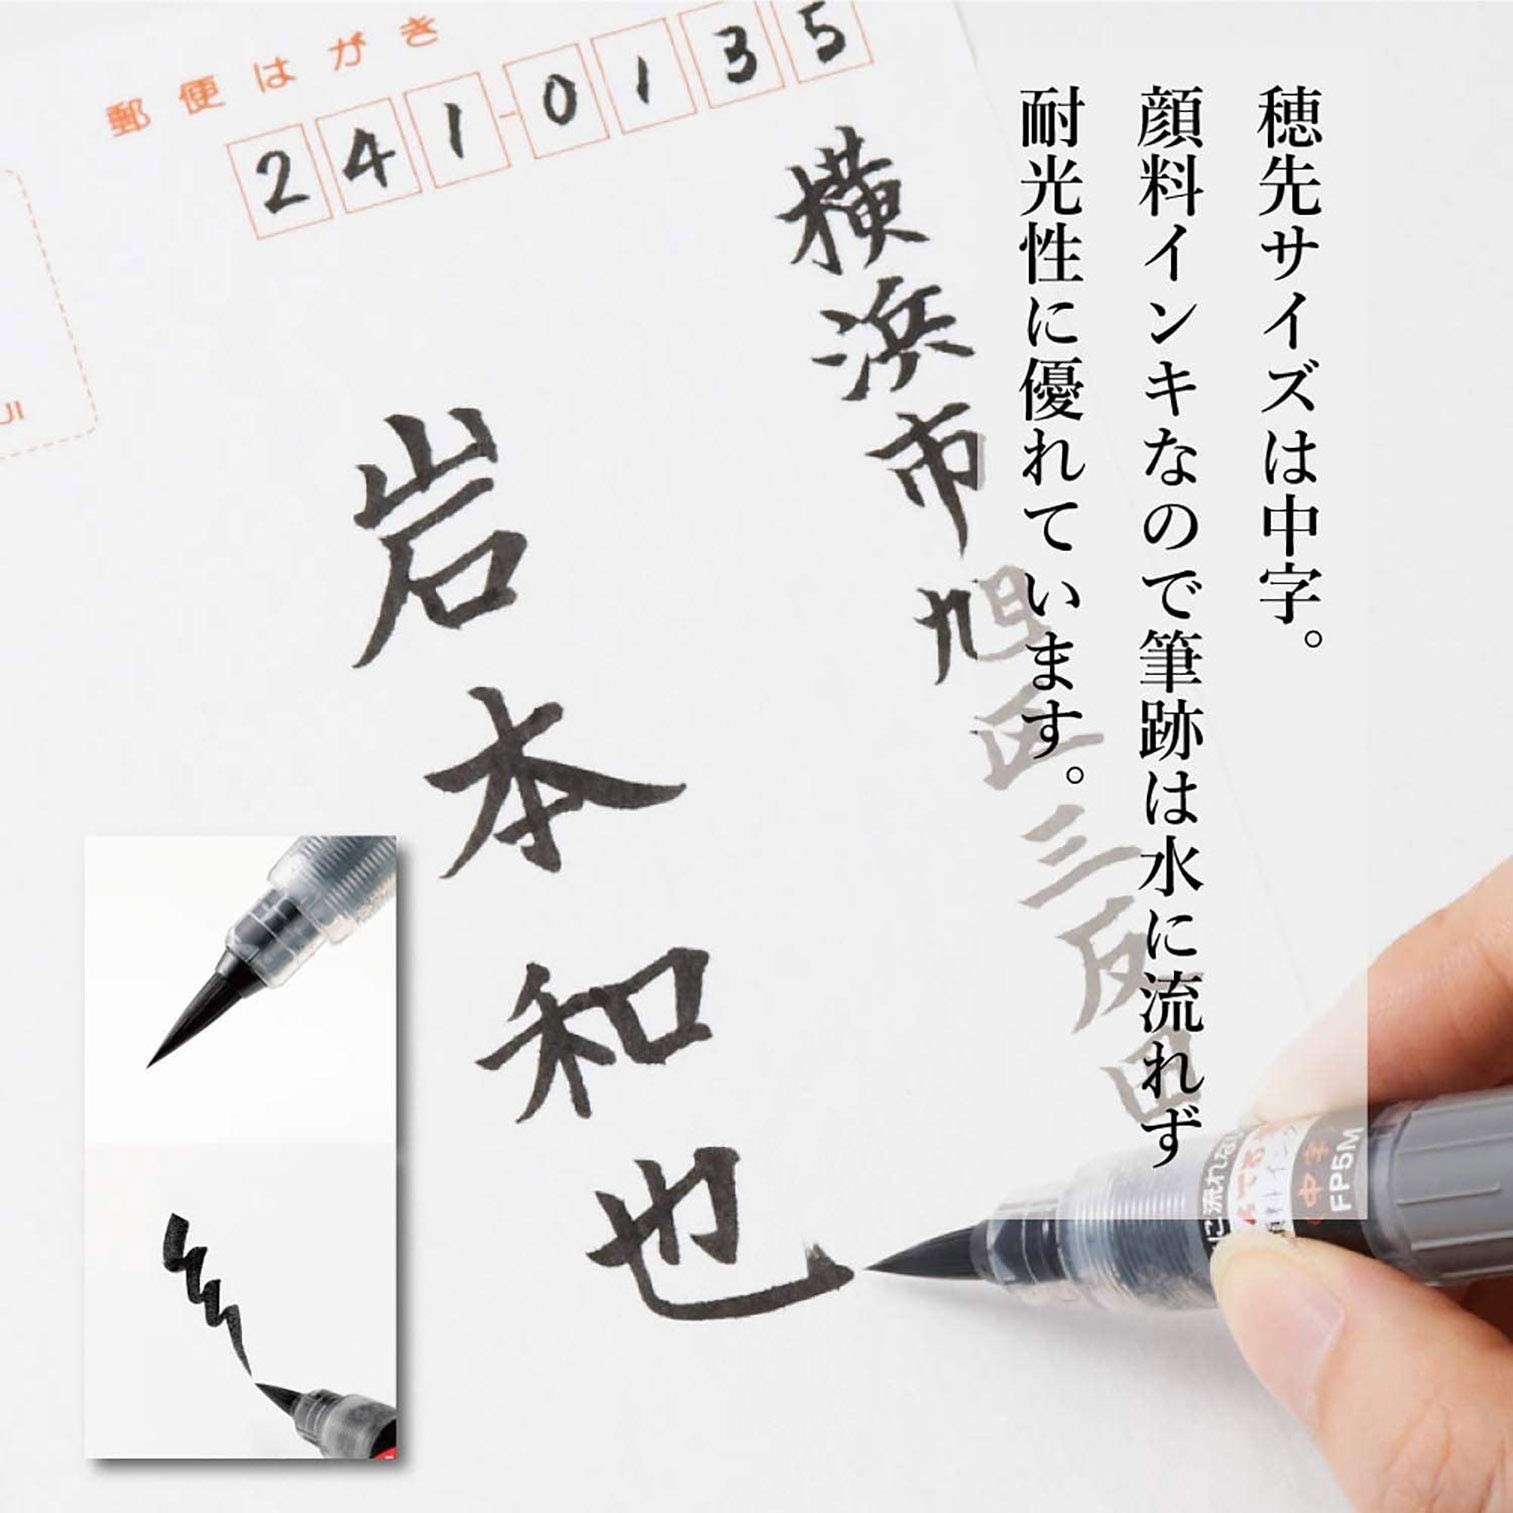 穂先サイズは中字。
顔料インキなので筆跡は水に流れず
耐光性に優れています。
郵便はがき
241-0135
横浜市旭区三反田
岩本和也
に流れない
中字
FP5M